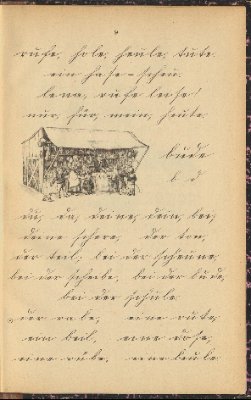 rufe, hole, heule, tute
ein hase - scheu
lena, rufe leise!
nur, für, mein, heute
bude
b d
du, da, deine, dein, bei,
deine schere, der ton,
der teil, bei der scheune,
bei der scheibe, bei der bude,
bei der schule
der rabe, eine rute,
ein beil, eine dose,
eine rübe, eine beule